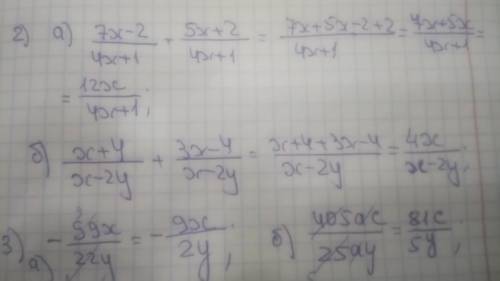 2) а) (7x-2)/(4x+1) + (5x+2)/(4x+1) = (7x+5x-2+2)/(4x+1) = (4x+5x)/(4x+1) =
= 12x/(4x+1);
б) (x+4)/(x-2y) + (3x-4)/(x-2y) = (x+4+3x-4)/(x-2y) = 4x/(x-2y);
3) а) - 99x/22y = - 9x/2y; б) 405ac/25ay = 81c/5y;